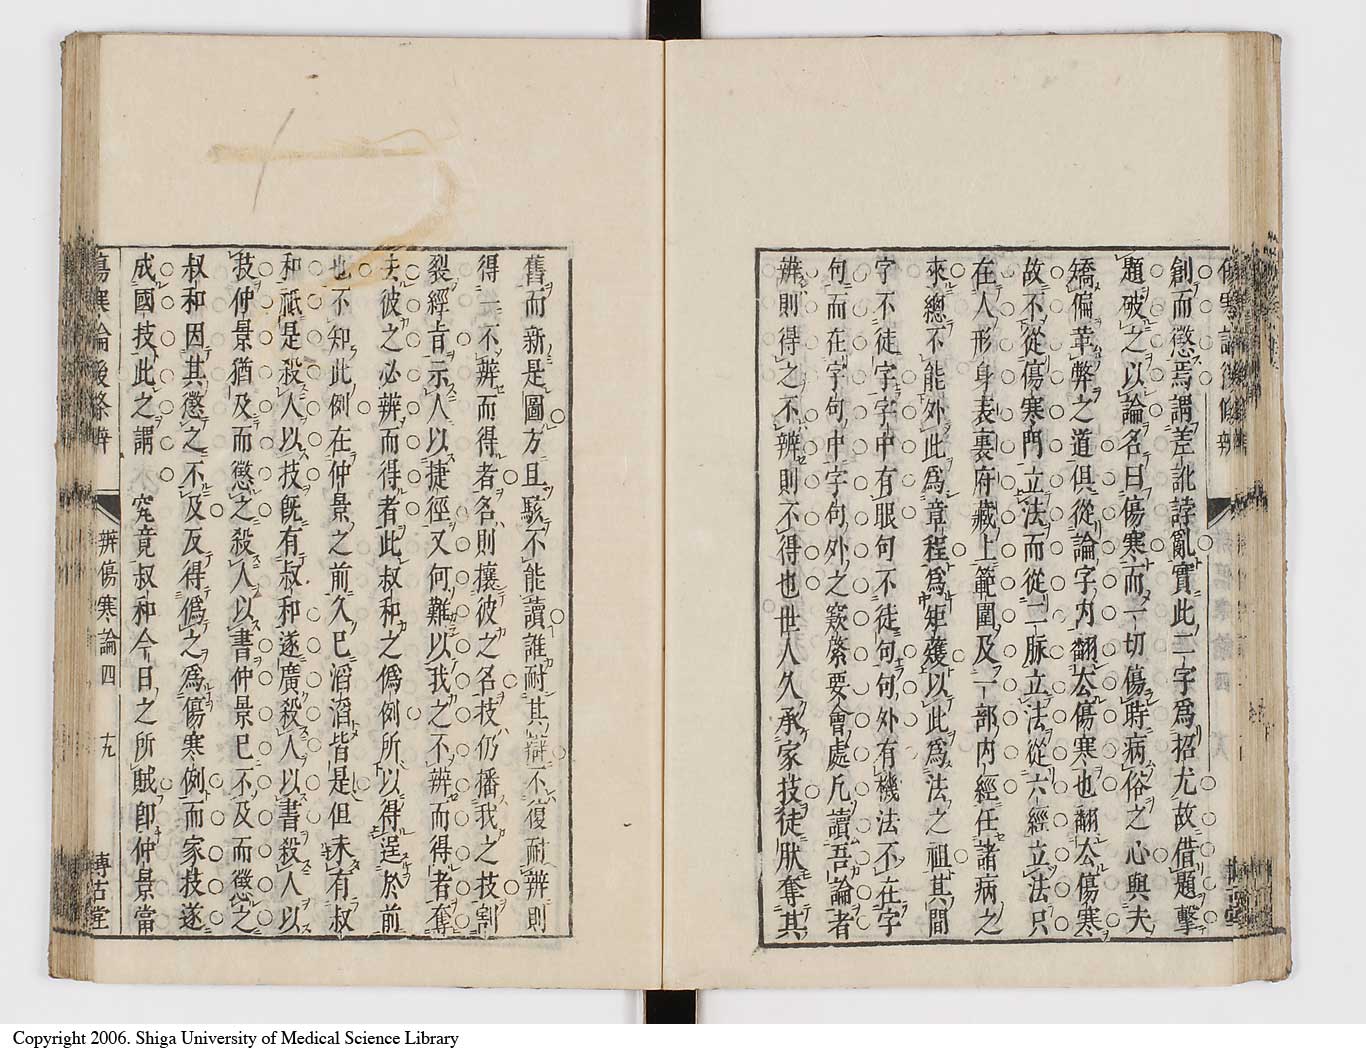 創而懲焉謂差訛誖亂實此二字爲招尤故借題擊
題破之以論名曰傷寒而一切傷時病俗之心與夫
矯偏革弊之道俱從論字内翻去傷寒也翻去傷寒
故不從傷寒門立法而從二脉立法從六經立法只
在人形身表裏府藏上範圍及一部内經任諸病之
來總不能外此爲章程爲矩矱以此爲法之祖其間
字不徒字字中有眼句不徒句句外有機法不在字
句而在字句中字句外之窽綮要會處凡讀吾論者
辨則得之不辨則不得也世人久承家技徒肰奪其
舊而新是圖方且駭不能讀誰耐其辯不復耐辨則
得一不辨而得者名則攘彼之名技仍播我之技割
裂經旨示人以捷徑又何難以我之不辨而得者奪
夫彼之必辨而得者此叔和之僞例所以得逞於前
也不知此例在仲景之前久巳滔滔皆是但未有叔
和祇是殺人以技旣有叔和遂廣殺人以書殺人以
技仲景猶及而懲之殺人以書仲景巳不及而懲之
叔和因其懲之不及反得僞之爲傷寒例而家技遂
成國技此之謂
究竟叔和今日之所賊卽仲景當
傷寒論後條辨
辨傷寒論四
十九
博古堂